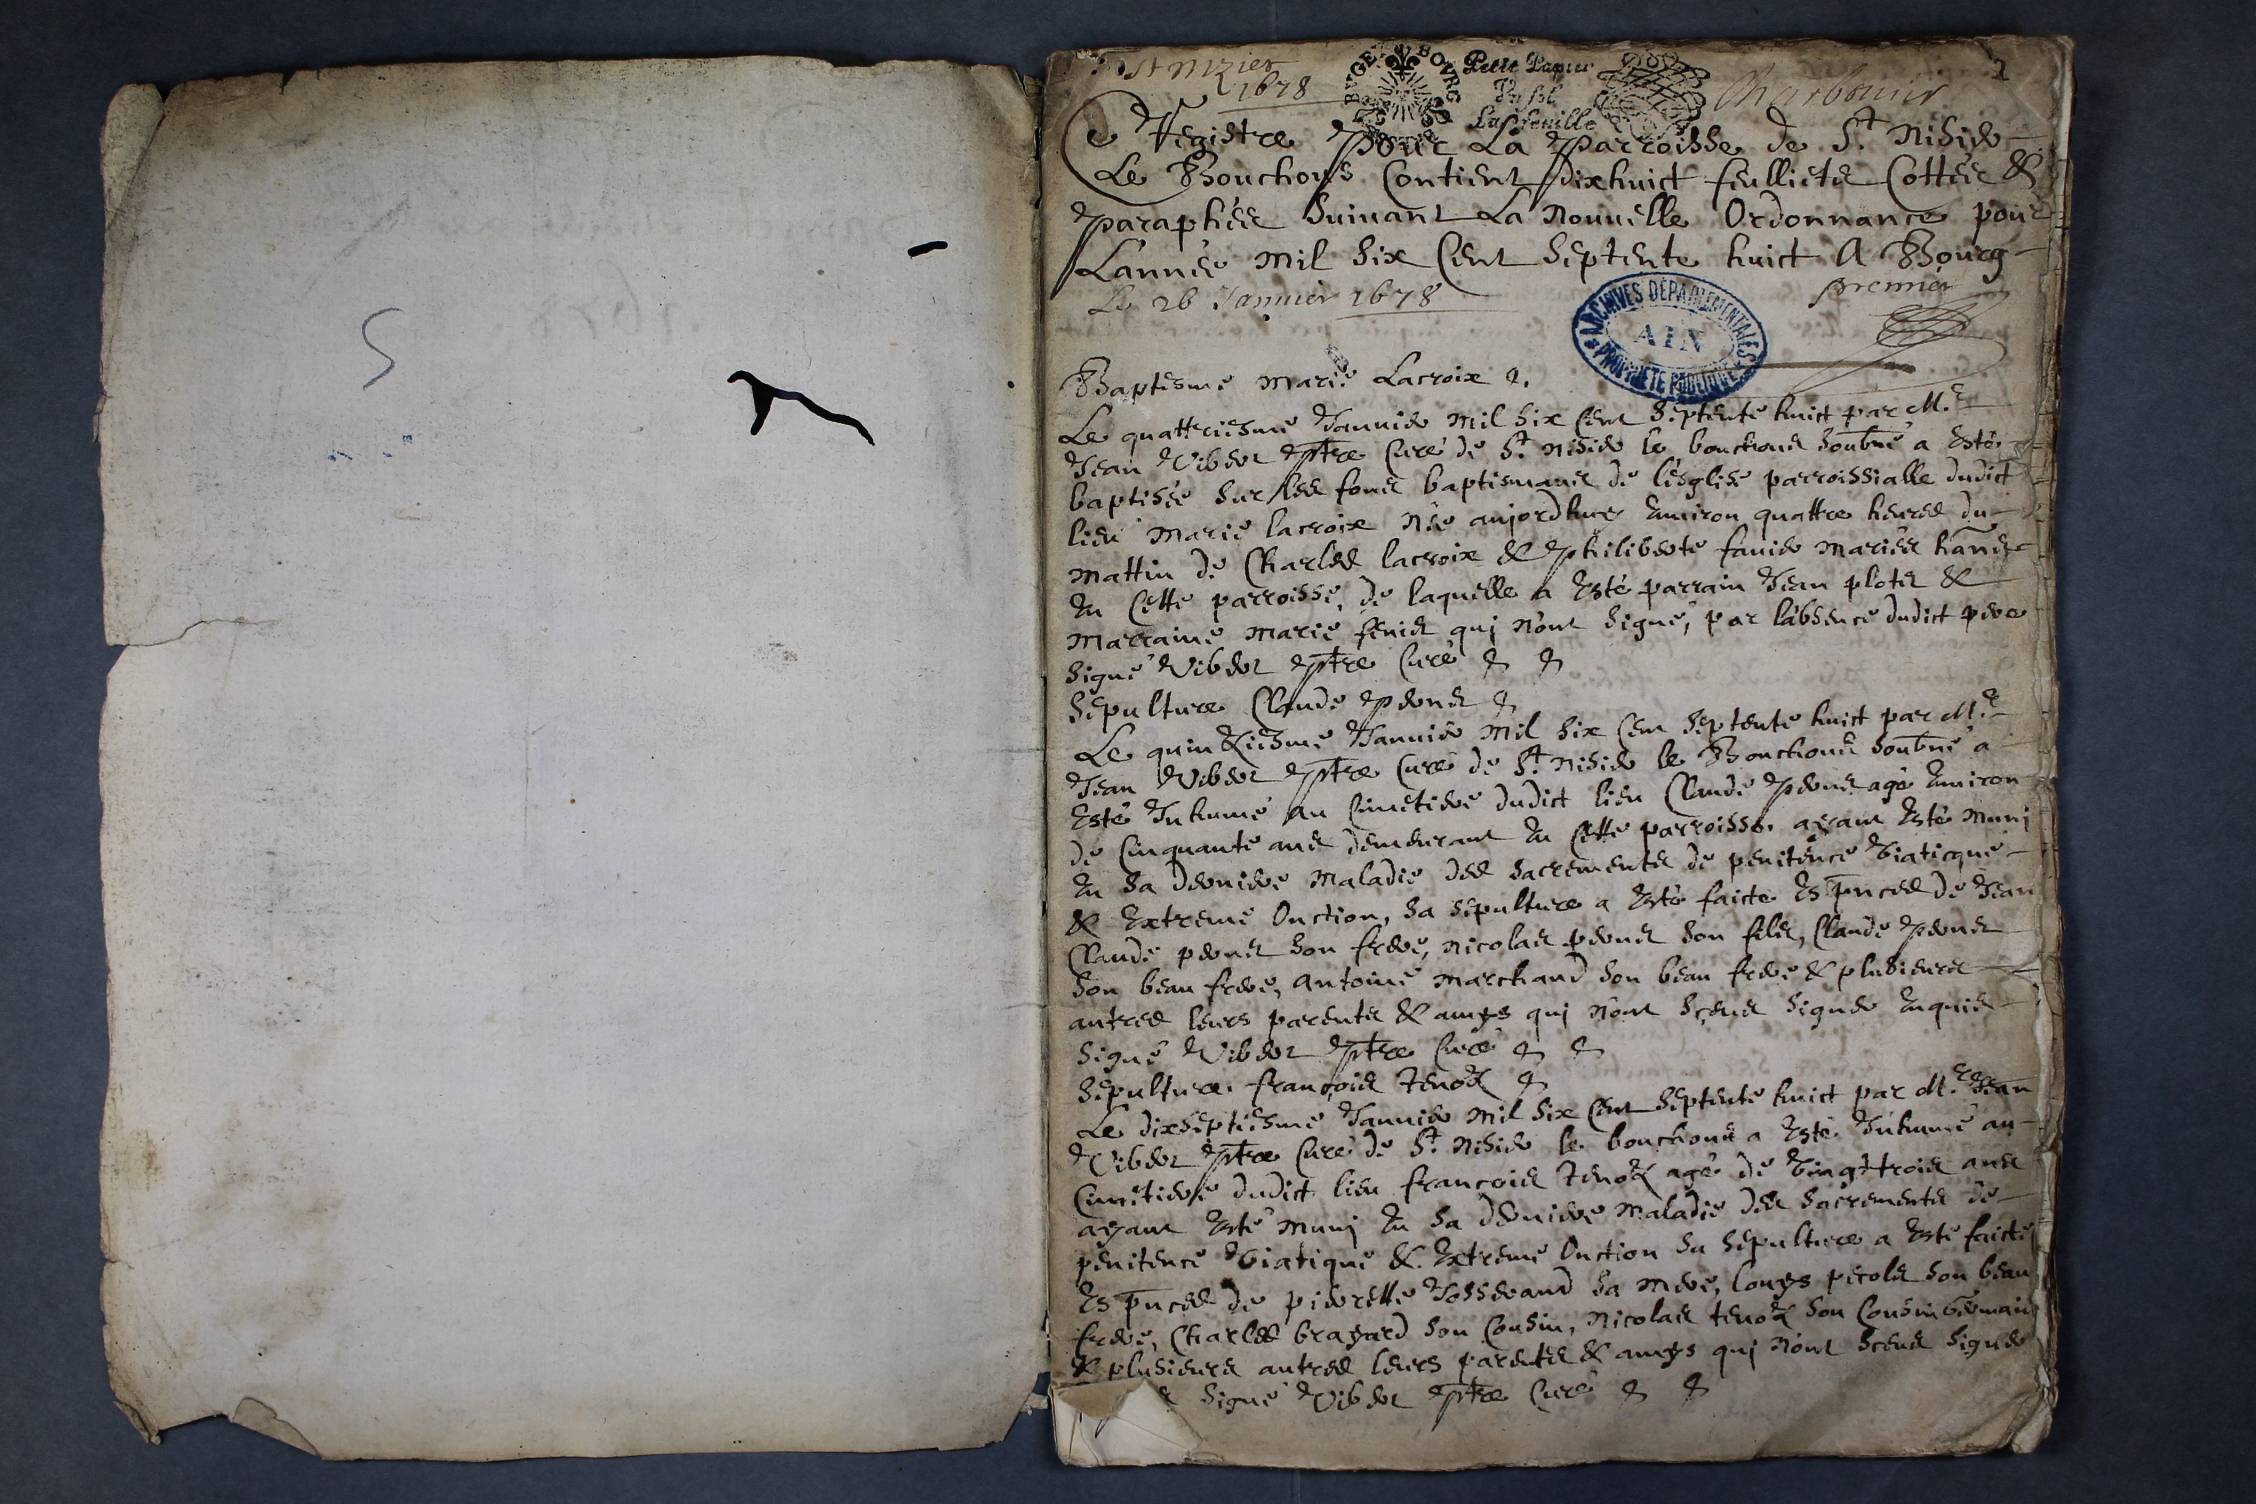 5
2
St Nizier
1678
BVGEY BOVRG
Petit Papier
La feuille
Charbonier
Ce Registre pour La parroisse de St. Nisier
Le Bouchous Contient dixhuict feullietz Cottés &
paraphés suiuant La Nouuelle Ordonnance pour
L'année mil six Cent septente huict A Bourg
Le 26 Januier 1678
premier
ARCHIVES DÉPARTEMENTALES
AIN
PROPRIÉTÉ PUBLIQUE
Baptesme Marie Lacroix &.
Le quattriesme Januier mil six cent septente huict par Mre
Jean Vibert ptre curé de St. Nisier le bouchous soubné a esté
baptisée sur les fons baptismaus de l'esglise parroissialle dudict
lieu Marie lacroix née aujordhuy enuiron quattre heures du
mattin de Charles lacroix & philiberte fauier mariés hãns
en cette parroisse, de laquelle a esté parrain Jean plots &
marraine marie qui n'ont signé, par l'absence dudict pere
signé Vibert ptre Curé & &
Sepulture Claude perus &
Le quinziesme Januier mil six cent septente huict par Mre
Jean Vibert ptre curé de St. Nisier le Bouchous soubné a
esté Inhumé au cimetiere dudict lieu Claude perus agé enuiron
de cinquante ans demeurant en cette parroisse, ayant esté muni
en sa derniere maladie des sacrements de penitence viaticque
& extreme Onction, sa sepulture a esté faicte es pnces de Jean
Claude perus son frere, nicolas perus son fils, Claude perus
son beau frere, antoine marchand son beau frere & plusieurs
autres leurs parents & amys qui n'ont sceus signer enquis
signé Vibert ptre Curé & &
Sepulture françois tenoz &
Le dixseptiesme Januier mil six cent septente huict par Mre Jean
Vibert ptre curé de St. Nisier le bouchous a esté Inhumé au
cimetiere dudict lieu françois tenoz agé de vingttrois ans
ayant esté muni en sa derniere maladie des sacrements de
penitence viatique & extreme Onction sa sepulture a esté faicte
es pnces de pierrette Josserand sa mere, louys picols son beau
frere, Charles brayard son cousin, nicolas tenoz son cousin germain
& plusieurs autres leurs parents & amys qui n'ont sceus signer
signé Vibert ptre Curé & &